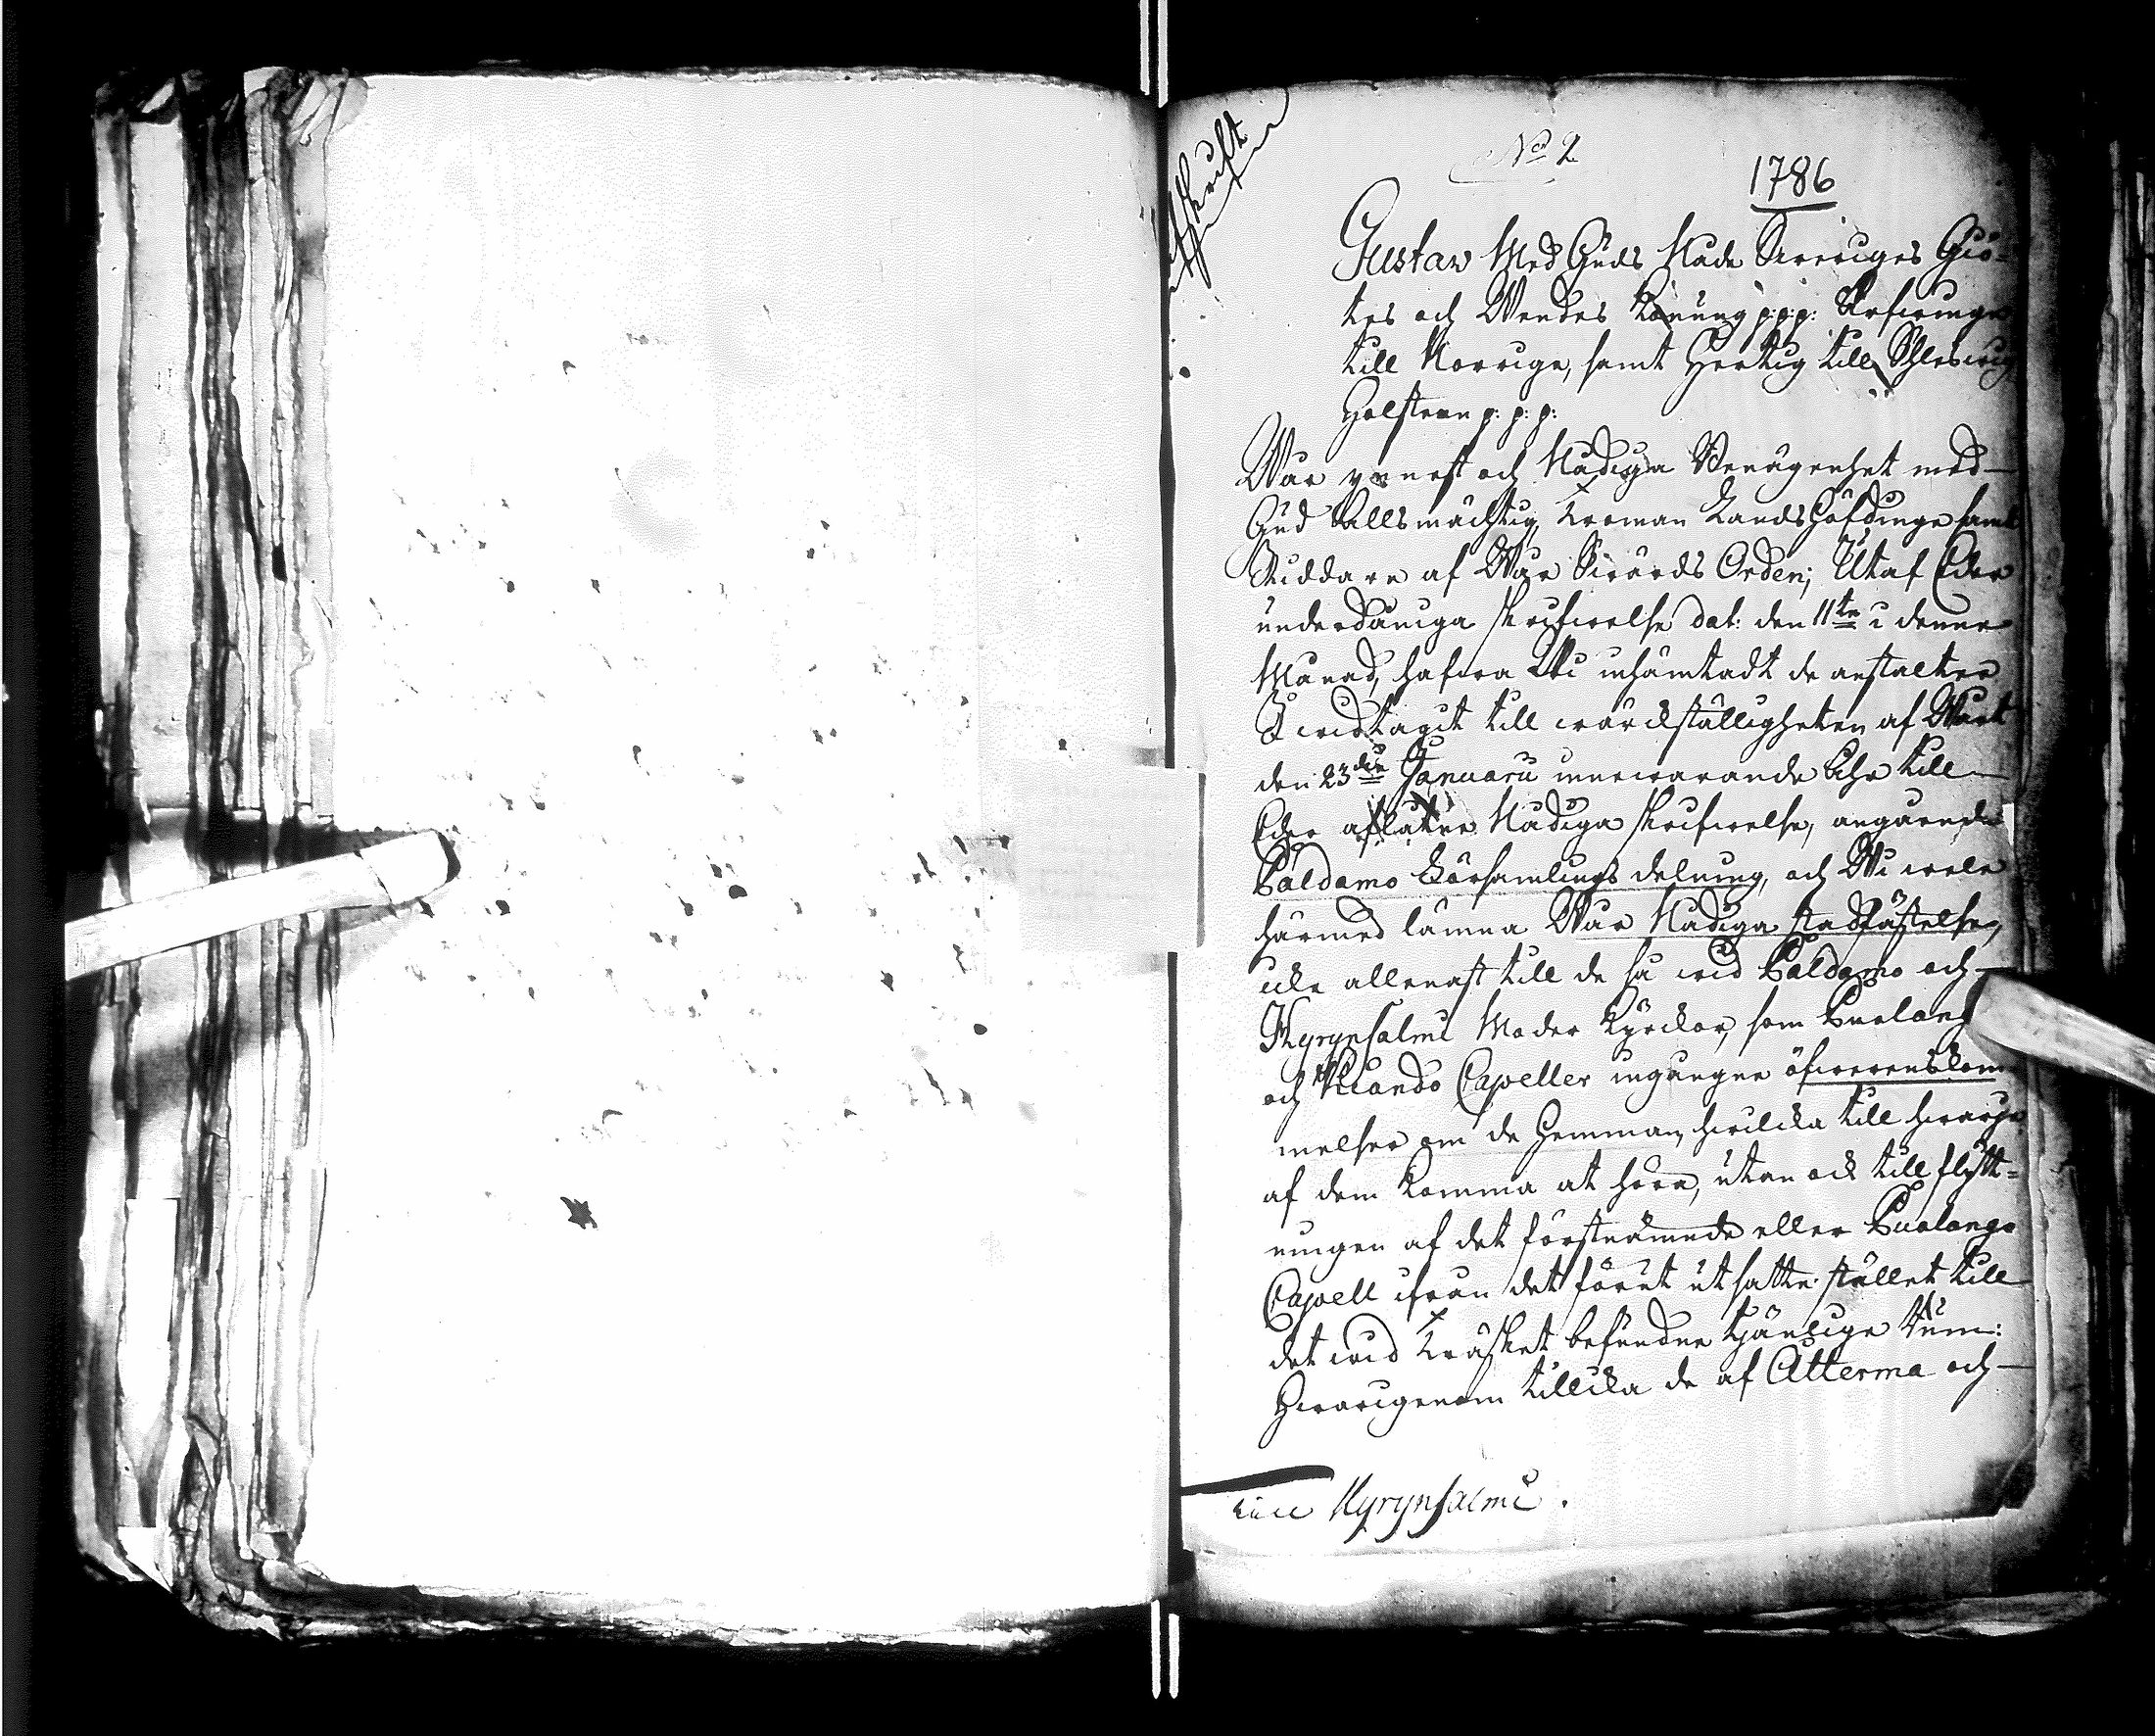 Afskrift
No 2
1786
Gustaw Med Guds Nåde Sweriges Giö-
tes och Wendes Konung p:p:p: Arfwinge
till Norrige, samt Hertig till Schleswig
Holstein p: p: p:
Wår ynnest och Nådiga Benägenhet med
Gud Allsmächtig, Troman Landshöfdinge samt
Riddare af Wår Swärds Orden; Utaf Eder
underdåniga skrifwelse dat: den 11te i denne
Månad, hafwa Wi inhämtadt de anstalter
I widtagit till wärckställigheten af Wårt
den 23die Januarii innewarande åhr till
Eder aflåtne Nådiga skrifwelse, angående
Paldamo Församlings delning, och Wi wele
härmed lämna Wår Nådiga stadfästelse,
icke allenast till de så wid Paldamo och
Hyrynsalmi Moder Kyrckor, som Puolang
och Kiando Capeller ingångne öfwerenskom
melser om de Hemman, hwilcka till hwarje
af dem komma at höra, utan ock till flytt=
ningen af det förstnämnde eller Puolango
Capell ifrån det förut utsatte stället till
det wid Träsket befundne tjänlige Rum:
Hwarigenom tillika de af Atterma och
Hyrynsalmi.